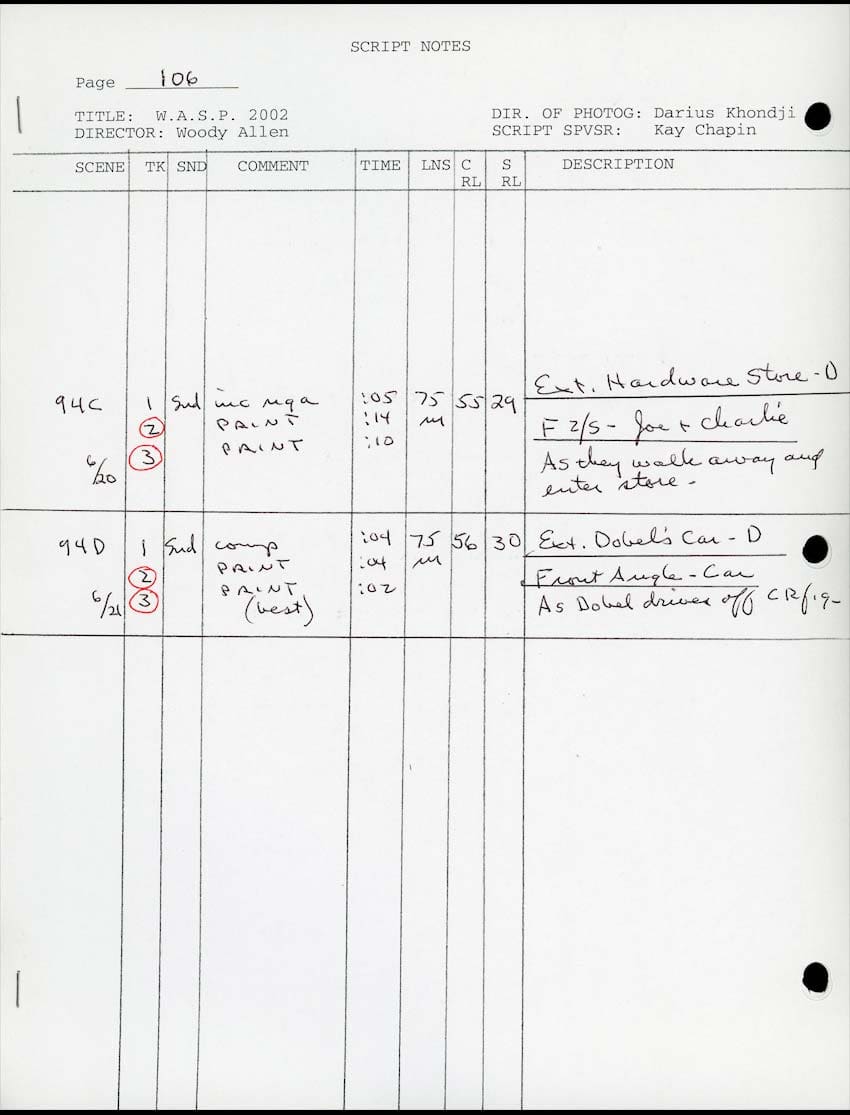 SCRIPT NOTES
Page 106
TITLE: W.A.S.P. 2002 DIR. OF PHOTOG: Darius Khondji
DIRECTOR: Woody Allen SCRIPT SPVSR: Kay Chapin
SCENE TK SND COMMENT TIME LNS C RL S RL DESCRIPTION
Ext. Hardware Store - D
94C 1 Snd inc :05 75 55 29
2 PRINT :14 m F 2/S - Joe + Charlie
3 PRINT :10
6/20 As they walk away and
enter store -
94D 1 Snd comp :04 75 56 30 Ext. Dobel's Car - D
2 PRINT :04 m Front Angle - Car
6/21 3 PRINT :02 As Dobel drives off CR f.g-
(best)